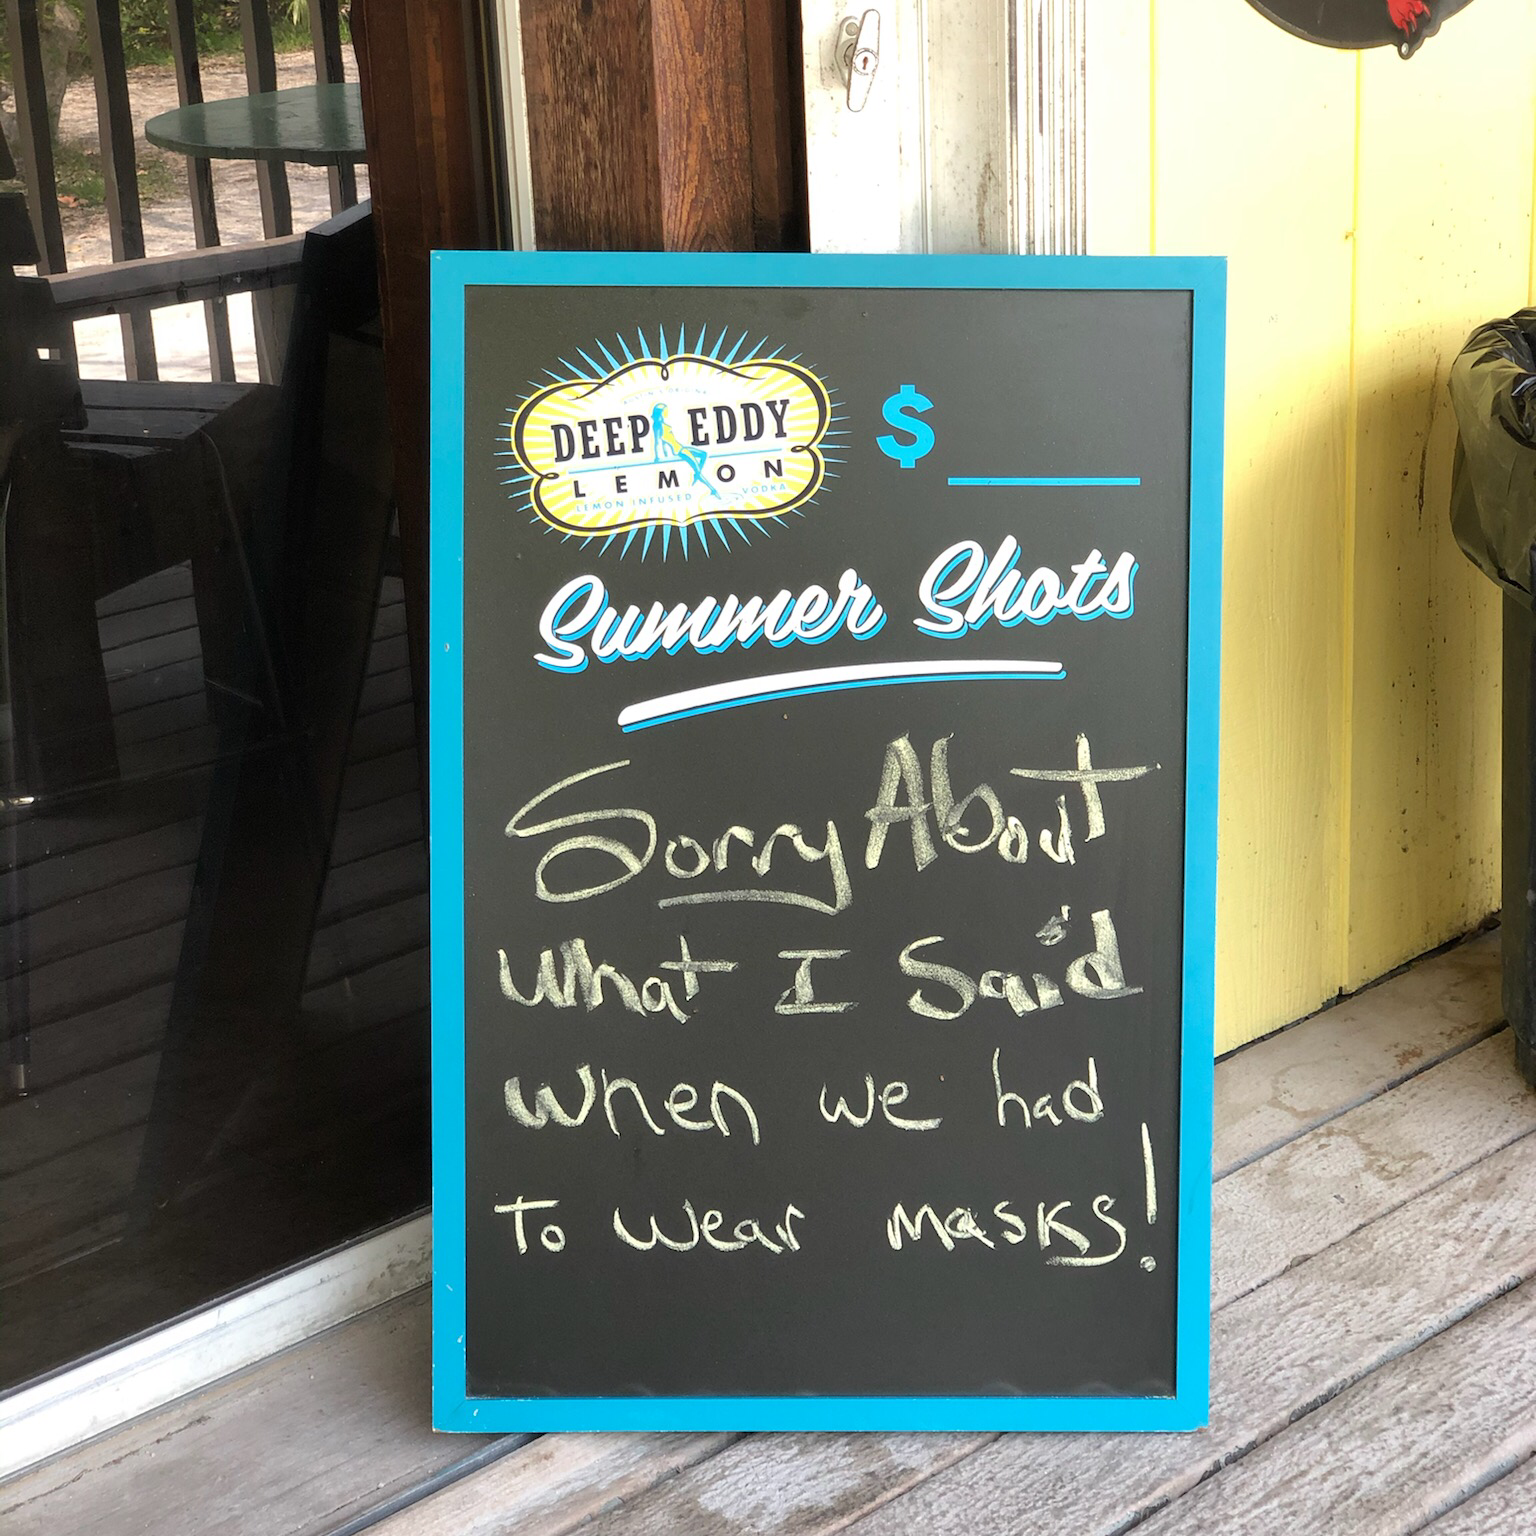 DEEP EDDY
LEMON
LEMON INFUSED VODKA
$
Summer Shots
Sorry About
what I Said
when we had
To wear masks!